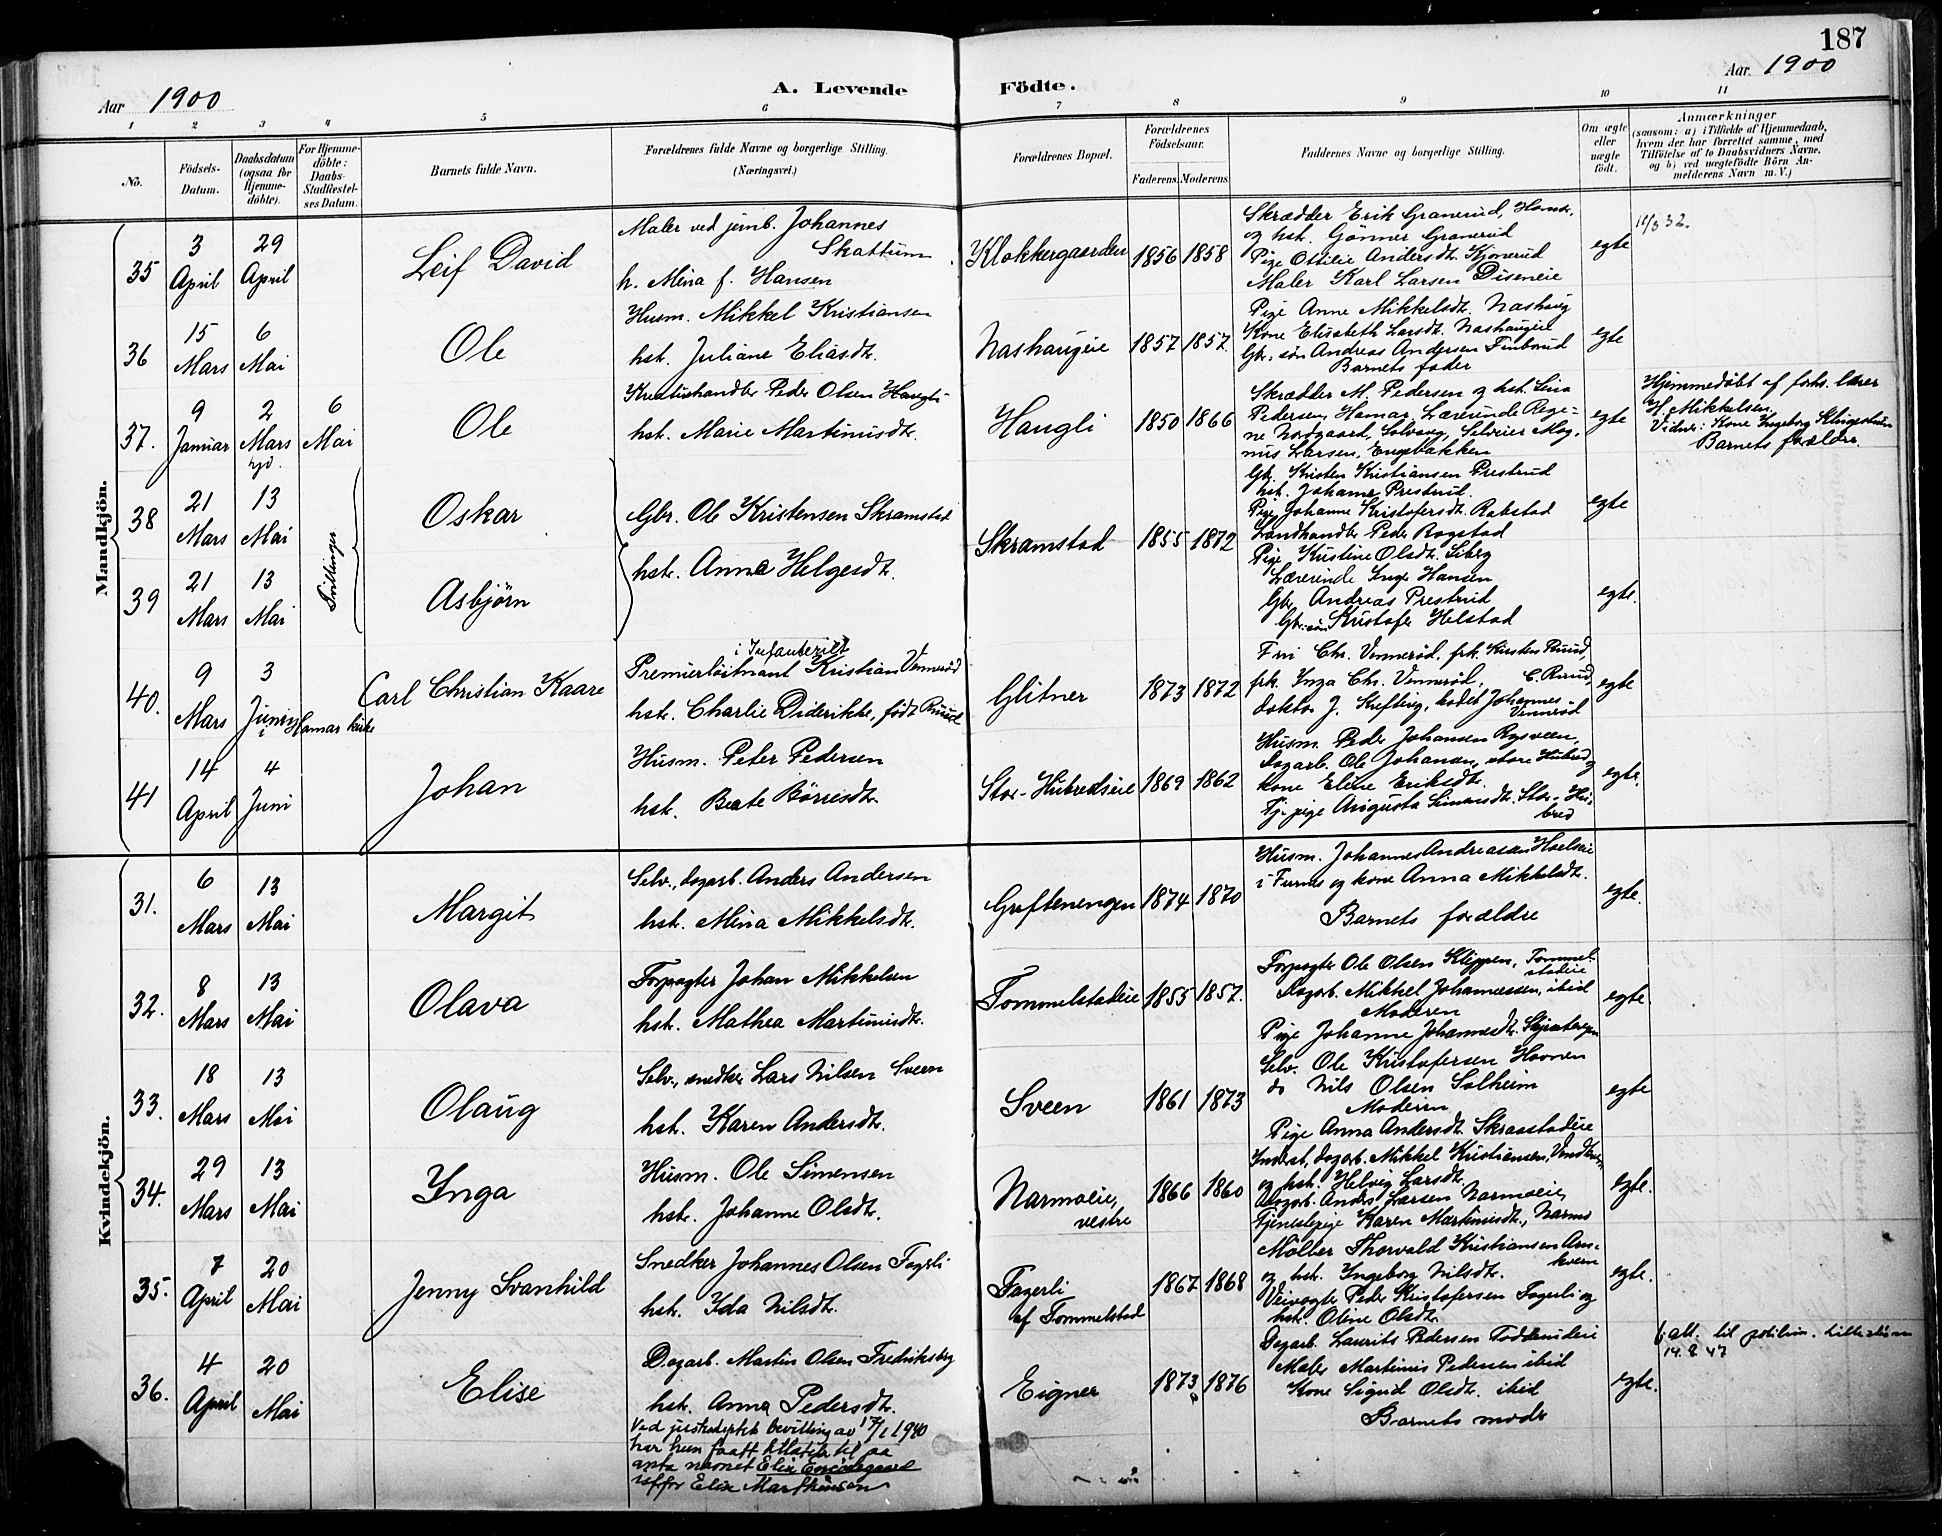 187
Aar 1900
A. Levende
Födte.
Aar 1900
1 2 3 4 5 6 7 8 9 10 11
No.
Födsels-
Datum.
Daabsdatum
(ogsaa for
Hjemme-
döbte).
For Hjemme-
döbte:
Daabs-
Stadfæstel-
ses Datum.
Barnets fulde Navn.
Forældrenes fulde Navne og borgerlige Stilling.
(Næringsvei.)
Forældrenes Bopæl.
Forældrenes
Födselsaar.
Faderens. Moderens.
Faddernes Navne og borgerlige Stilling.
Om ægte
eller
uægte
födt.
Anmærkninger
(saasom: a) i Tilfælde af Hjemmedaab,
hvem der har forrettet samme, med
Tilföielse af to Daabsvidners Navne,
og b) ved uægtefödte Börn An-
melderens Navn m. V.)
Mandkjön.
35
3
April
29
April
Leif David
Maler ved jernb. Johannes
Skattum
h. Mina f. Hansen
Klokkergaarden
1856 1858
Skrædder Erik Granerud, Hamar,
og hst. Gönner Granerud
Pige Ottilie Andersdt. Kjonerud
Maler Karl Larsen Diseneie
egte
36
15
Mars
6
Mai
Ole
Husm. Mikkel Kristiansen
hst. Juliane Eliasdt.
Nashaugeie
1857 1857.
Pige Anne Mikkelsdt. Nashaug
Kone Elisabeth Larsdt. Nashaugeie
Gbr. sön Andreas Andersen Finborud
Barnets fader
egte
37.
9
Januar
2
Mars
6
Mai
Ole
Kreaturhandler Peder Olsen Haugli
hst. Marie Martinusdt.
Haugli
1850 1866
Skrædder M. Pedersen og hst. Lina
Pedersen, Hamar, Lærerinde Regi-
ne Nordgaard, Solvang, Selveier Mag-
nus Larsen, Engebakken
egte
Hjemmedöbt af forh. lærer
H. Mikkelsen,
Vidner: Kone Ingeborg
Barnets forældre.
38
21
Mars
13
Mai
Tvillinger
Oskar
Gbr. Ole Kristensen Skramstad
hst. Anna Helgesdt.
Skramstad
1855 1872
Gbr. Kristen Kristiansen Prestrud
hst. Johanne Prestrud.
Pige Johanne Kristofersdt. Rabstad
Landhandler Peder Rogstad
egte
39
21
Mars
13
Mai
Asbjörn
Pige Kristine Olsdt. Liberg
Lærerinde Inga Hansen
Gbr. Andreas Prestrud
Gbr. sön Kristofer Helstad
egte.
40.
9
Mars
3
Juni
i Hamar kirke
Carl Christian Kaare
i Infanteriet
Premierlöitnant Kristian Vennerød
hst. Charlie Diderikke, födt Ruud
Glitner
1873 1872
Fru Chr. Vennerød, frk. Kirsten Ruud,
frk. Inga Chr. Vennerød, C. Ruud
doktor J. Krefting, kadet Johannes
Vennerød
egte
41
14
April
4
Juni
Johan
Husm. Peter Pedersen
hst. Beate Börresdt.
Stor-Hubredseie
1869 1862
Husm. Peder Johansen Rysveen,
Dagarb. Ole Johansen, store Hubred og
kone Eline Eriksdt.
Tj. pige Augusta Simensdt. Stor-Hu-
bred
egte.
Kvindekjön.
31.
6
Mars
13
Mai
Margit
Selv., dagarb. Anders Andersen
hst. Mina Mikkelsdt.
Grefteneengen
1874 1870
Husm. Johannes Andreassen Hoelseie
i Furnes og kone Anna Mikkelsdt.
Barnets forældre
egte.
32.
8
Mars
13
Mai
Olava
Forpagter Johan Mikkelsen
hst. Mathea Martinusdt.
Tommelstadeie
1855 1857.
Forpagter Ole Olsen Klippen, Tommel-
stadeie
Dagarb. Mikkel Johannessen, ibid
Moderen
Pige Johanne Johannesdt.
egte.
33.
18
Mars
13
Mai
Olaug
Selv., snedker Lars Nilsen Sveen
hst. Karen Andersdt.
Sveen
1861 1873
Selv. Ole Kristofersen Haanen
do Nils Olsen Solheim
Moderen
Pige Anna Andersdt. Skraastadeie
egte
34.
29
Mars
13
Mai
Inga
Husm. Ole Simensen
hst. Johanne Olsdt.
Narmoeie,
vestre
1866 1860
Inderst, dagarb. Mikkel Kristiansen,
og hst. Helvig Larsdt.
Dagarb. Anders Larsen Narmoeie,
Tjenestepige Karen Martinusdt., Narmo
egte.
35.
7
April
20
Mai
Jenny Svanhild
Snedker Johannes Olsen Fagerli
hst. Ida Nilsdt.
Fagerli
af Tommelstad
1867 1868
Möller Thorvald Kristiansen Arn-
kvern
og hst. Ingeborg Nilsdt.
Veivogter Peder Kristofersen Fagerli og
hst. Oline Olsdt.
egte.
36.
4
April
20
Mai
Elise
Dagarb. Martin Olsen Fredriksberg
hst. Anna Pedersdt.
Ved justisdeptets bevilling av 17/1 1940
har hun faatt tillatelse til aa
anta navnet Elise
istfor Elise Marthinsen
Eigner
1873 1876
Dagarb. Laurits Pedersen Toddenudeie
Maler Martinus Pedersen ibid
Kone Sigrid Olsdt. ibid
Barnets moder
egte.
14.8.47